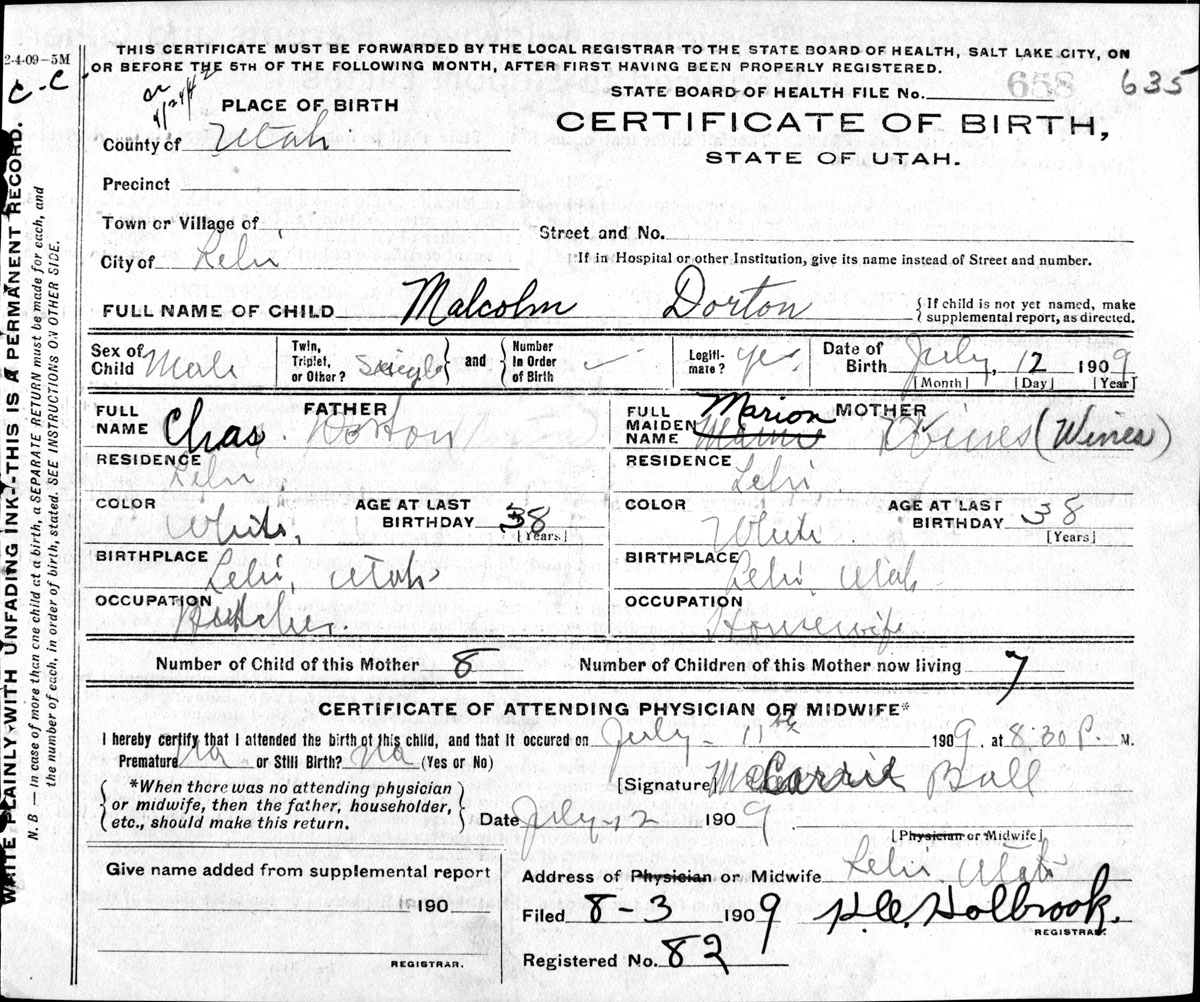 THIS CERTIFICATE MUST BE FORWARDED BY THE LOCAL REGISTRAR TO THE STATE BOARD OF HEALTH, SALT LAKE CITY, ON
OR BEFORE THE 5TH OF THE FOLLOWING MONTH, AFTER FIRST HAVING BEEN PROPERLY REGISTERED.
2-4-09-5M
C-C
STATE BOARD OF HEALTH FILE No. 658 635
PLACE OF BIRTH
CERTIFICATE OF BIRTH,
STATE OF UTAH.
County of Utah
Precinct
Town or Village of
Street and No.
City of Lehi
If in Hospital or other Institution, give its name instead of Street and number.
FULL NAME OF CHILD Malcolm Dorton
{If child is not yet named, make
supplemental report, as directed.
Sex of Child Male
Twin, Triplet, or Other? Single
and
Number In Order of Birth
Legiti-mate? Yes
Date of Birth July, 12 1909
[Month] [Day] [Year]
FATHER
FULL NAME Chas. Dorton
RESIDENCE Lehi
COLOR White.
AGE AT LAST BIRTHDAY 38
[Years]
BIRTHPLACE Lehi, Utah
OCCUPATION Butcher.
MOTHER
FULL MAIDEN NAME Marion (Wines)
RESIDENCE Lehi.
COLOR White.
AGE AT LAST BIRTHDAY 38
[Years]
BIRTHPLACE Lehi Utah
OCCUPATION Housewife
Number of Child of this Mother 8
Number of Children of this Mother now living 7
CERTIFICATE OF ATTENDING PHYSICIAN OR MIDWIFE*
I hereby certify that I attended the birth of this child, and that it occured on July 11th 1909, at 8:30 P. M.
Premature No or Still Birth? No (Yes or No)
[Signature] Carrie Ball
{*When there was no attending physician
or midwife, then the father, householder,
etc., should make this return.}
Date July-12 1909
[Physician or Midwife]
Give name added from supplemental report
190
REGISTRAR.
Address of Physician or Midwife Lehi Utah
Filed 8-3 1909 Holbrook.
REGISTRAR.
Registered No. 82
WRITE PLAINLY WITH UNFADING INK--THIS IS A PERMANENT RECORD.
N. B — In case of more than one child at a birth, a SEPARATE RETURN must be made for each, and
the number of each, in order of birth, stated. SEE INSTRUCTIONS ON OTHER SIDE.